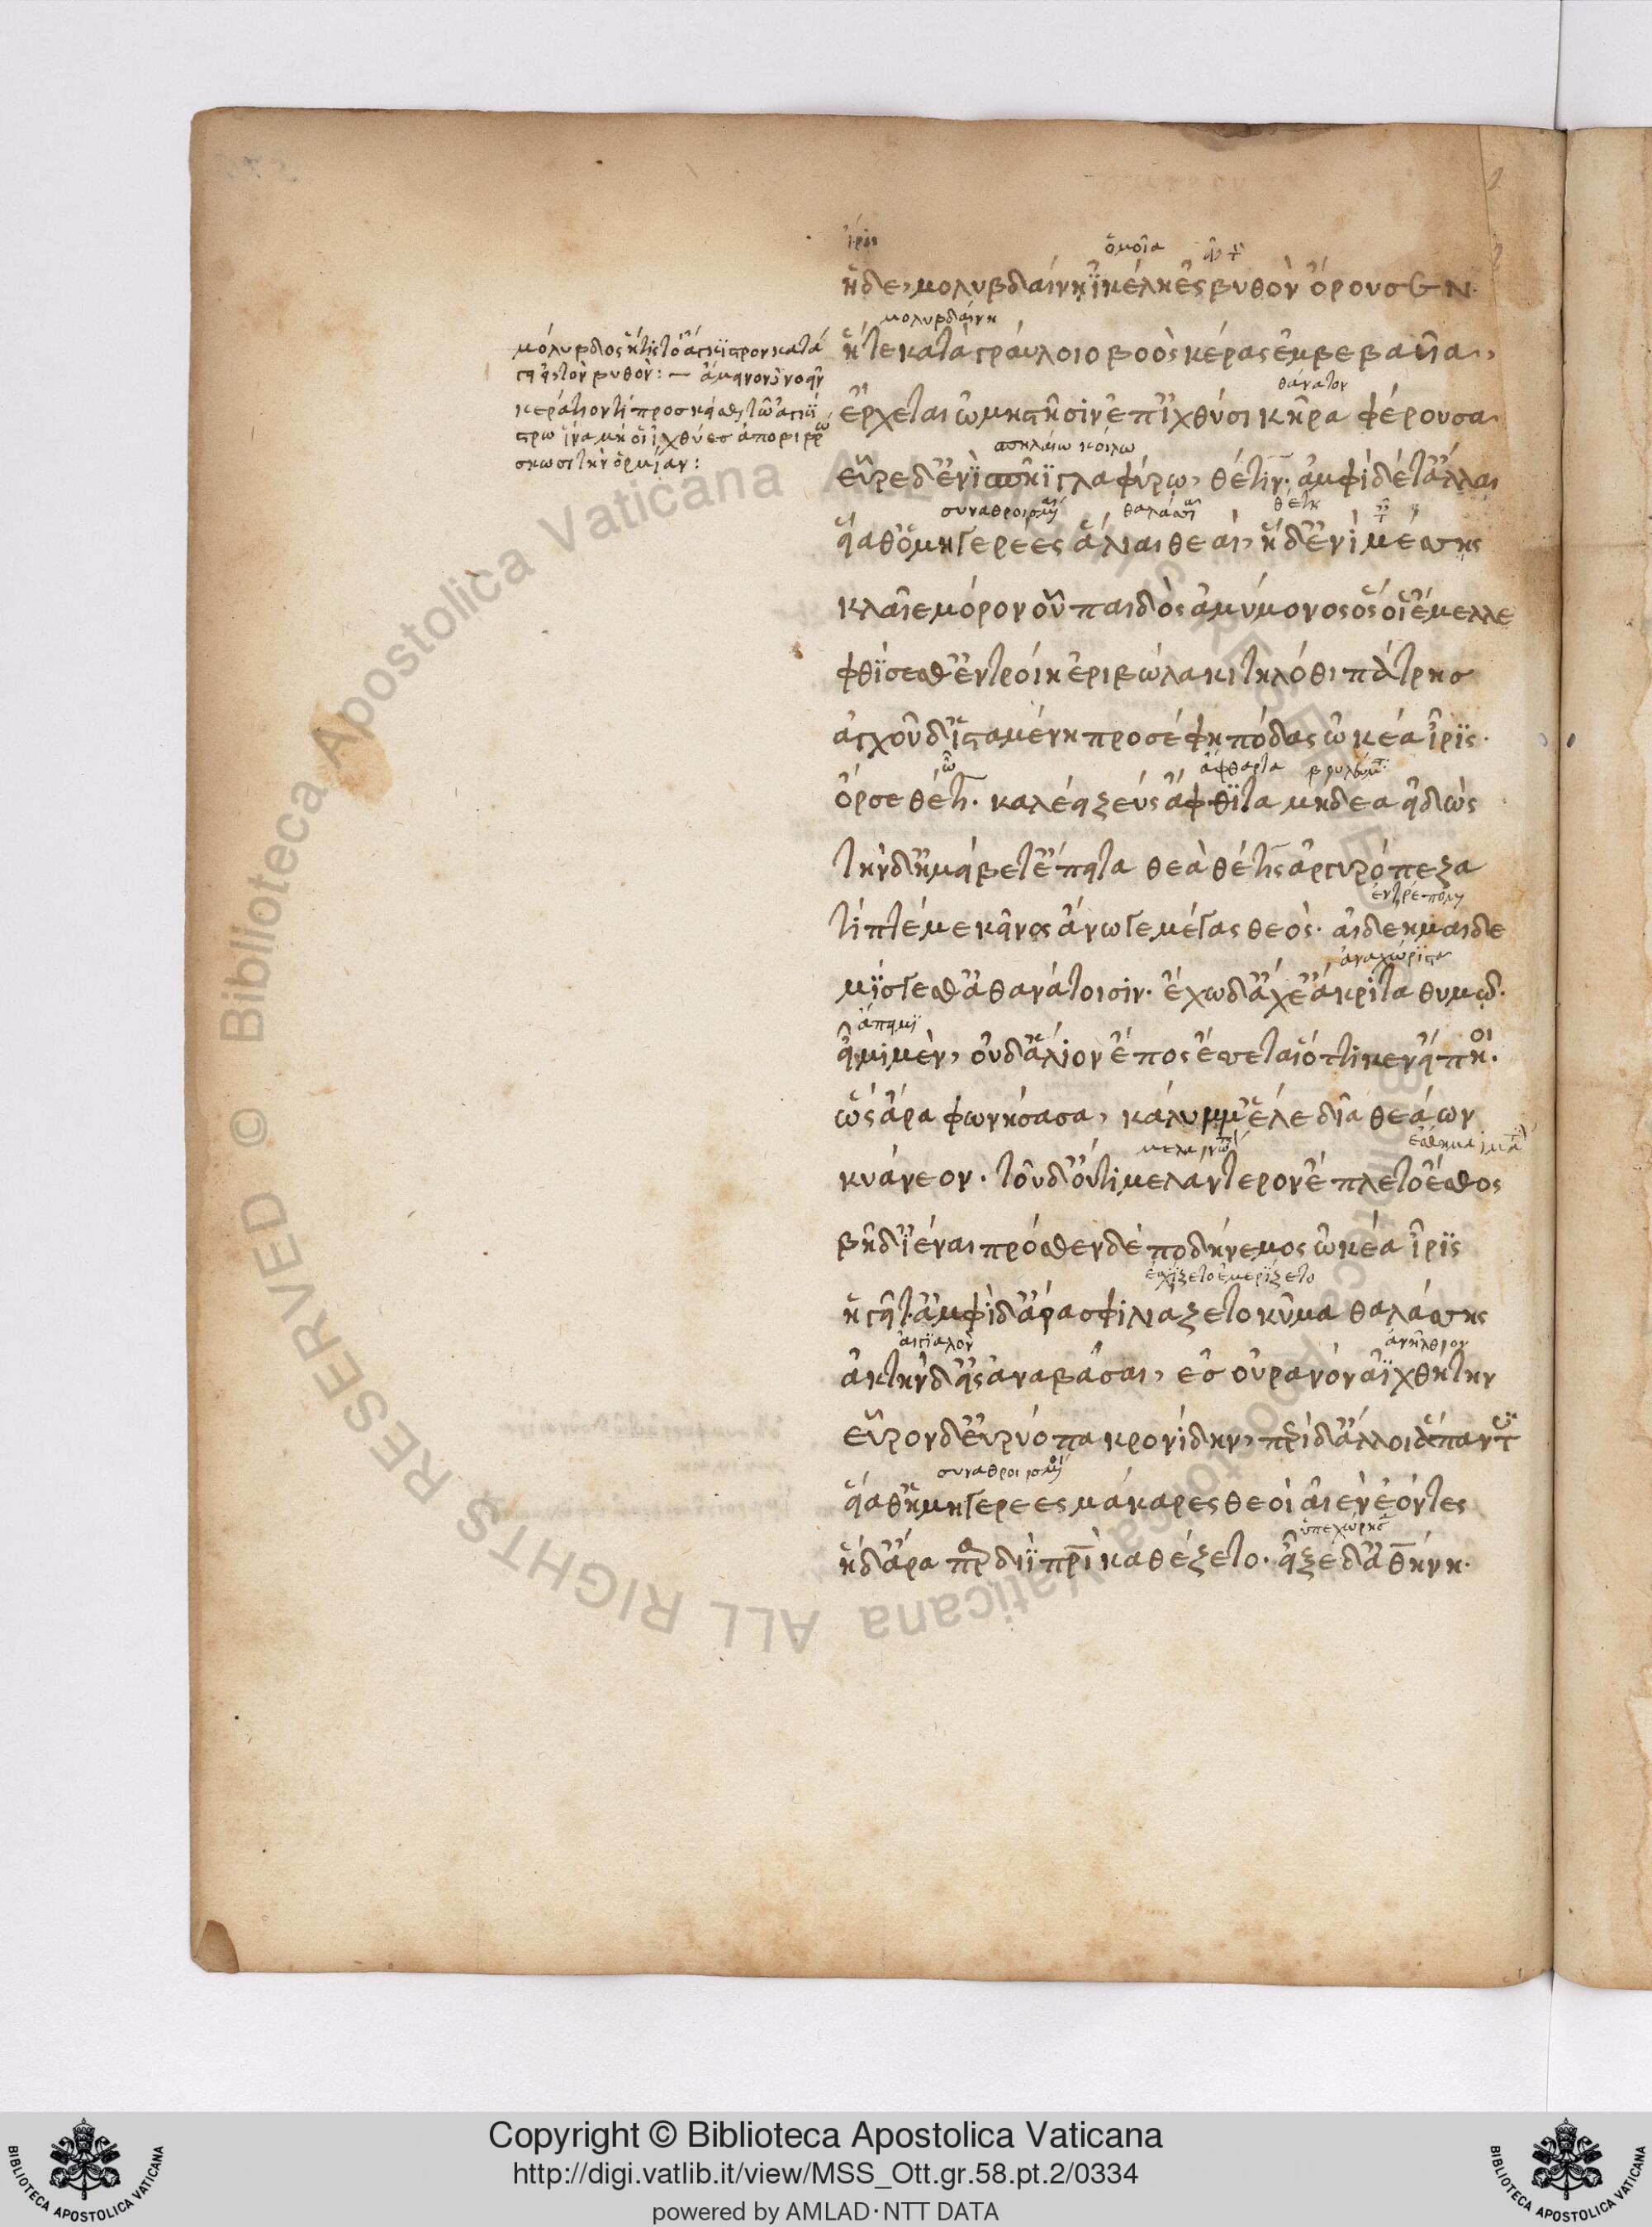 ἶρις
ὅμοία
ἡ δὲ, μολυβδαίνη ἰκέλη ἐς βυθὸν ὄρουσεν.
μολυβδαίνη
ἥτε κατ' ἀγραύλοιο βοὸς κέρας ἐμβεβαυῖα,
θάνατον
ἔρχεται ὠμηστῆσιν ἐπ' ἰχθύσι κῆρα φέρουσα
σπηλαίω κοίλω
εὗρε δ' ἐνὶ σπῆϊ γλαφύρω, θέτιν. ἀμφὶ δέ τ' ἄλλαι
συναθροισμέναι θαλάσσιαι θέτις
εἵαθ' ὁμηγερέες ἅλιαι θεαί, ἡ δ' ἐνὶ μέσσης
κλαῖε μόρον οὗ παιδὸς ἀμύμονος ὅς οἱ ἔμελλε
φθίσεσθ' ἐν τροίη ἐριβώλακι τηλόθι πάτρης
ἀγχοῦ δ' ἱσταμένη προσέφη πόδας ὠκέα ἶρις.
ὦ ἄφθαρτα βουλεύματα
ὄρσο θέτις. καλέει ζεὺς ἄφθιτα μήδεα εἰδὼς
τὴν δ' ἠμείβετ' ἔπειτα θεὰ θέτις ἀργυρόπεζα
ἐντρέπομαι
τίπτέ με κεῖνος ἄνωγε μέγας θεός. αἰδέομαι δὲ
ἀναχώριστα
μίσγεσθ' ἀθανάτοισιν. ἔχω δ' ἄχε' ἄκριτα θυμῶ.
ἄπειμι
εἶμι μὲν, οὐδ' ἅλιον ἔπος ἔσσεται ὅττι κεν εἴπη.
οι
ὣς ἄρα φωνήσασα, κάλυμμ' ἕλε δῖα θεάων
κυάνεον. τοῦ δ' οὔτι μελάντερον ἔπλετο ἔσθος
βῆ δ' ἰέναι πρόσθεν δὲ ποδήνεμος ὠκέα ἶρις
ἐσχίζετο ἐμερίζετο
ἡγεῖτ' ἀμφὶ δ' ἄρά σφι λιάζετο κῦμα θαλάσσης
αἰγιαλὸν ἀνῆλθον
ἀκτὴν δ' εἰσαναβᾶσαι, ἐσ οὐρανὸν ἀϊχθήτην
εὗρον δ' εὐρύοπα κρονίδην, περὶ δ' ἄλλοι ἅπαντες
συναθροισμένοι
εἵαθ' ὁμηγερέες μάκαρες θεοὶ αἰὲν ἐόντες
ὑπεχώρησε
ἡ δ' ἄρα παρ διῒ πατρὶ καθέζετο. εἶξε δ' ἀθήνη.
μόλυβδος ἥτις τὸ ἄγκιστρον κατά
γει εἰς τὸν βυθόν: —
κεράτιον τί προσκεῖσθαι τῶ ἀγκί
στρω ἵνα μὴ οἱ ἰχθύες
σκωσι τὴν ὁρμιάν:
Copyright © Biblioteca Apostolica Vaticana
http://digi.vatlib.it/view/MSS_Ott.gr.58.pt.2/0334
powered by AMLAD·NTT DATA
BIBLIOTECA APOSTOLICA VATICANA
BIBLIOTECA APOSTOLICA VATICANA
© Biblioteca Apostolica Vaticana ALL RIGHTS RESERVED
© Biblioteca Apostolica Vaticana ALL RIGHTS RESERVED